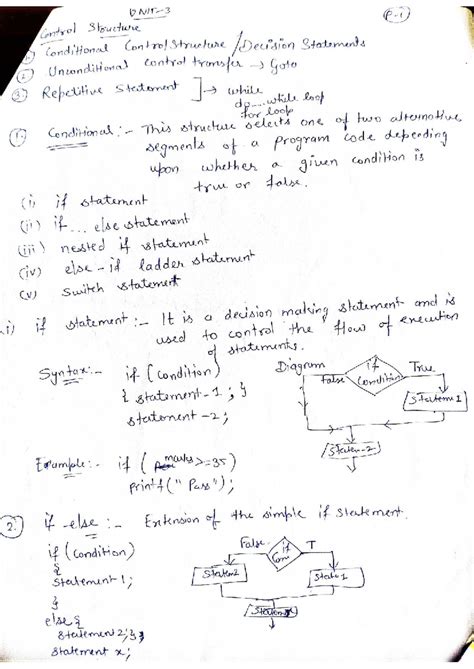 UNIT-3
P-1
Control Structure
① Conditional Control Structure / Decision Statements
② Unconditional control transfer → Goto
③ Repetitive Statement ] → while
do...while loop
for loop
①. Conditional:- This structure selects one of two alternative
segments of a program code depending
upon whether a given condition is
true or false.
(i) if statement
(ii) if... else statement
(iii) nested if statement
(iv) else-if ladder statement
(v) switch statement
i) if statement:- It is a decision making statement and is
used to control the flow of execution
of statements.
Syntax:- if (condition)
{ statement-1; }
statement-2;
Diagram
if
condition
False
True
Statem1
Statem-2
Example:- if (marks>=35)
printf("Pass");
2. if-else:- Extension of the simple if statement.
if (condition)
{
Statement1;
}
else {
statement2; }
statement x;
False
if
Con
T
Statem2
Statem1
Statemx